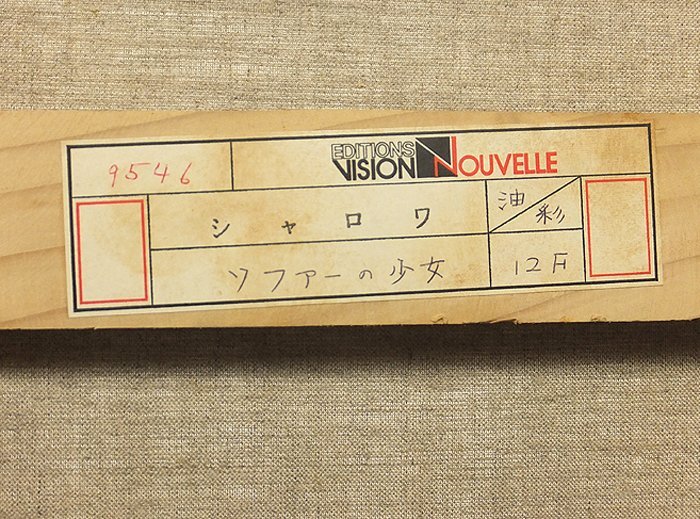 9546
EDITIONS
VISION NOUVELLE
シャロワ
油彩
ソファーの少女
12F